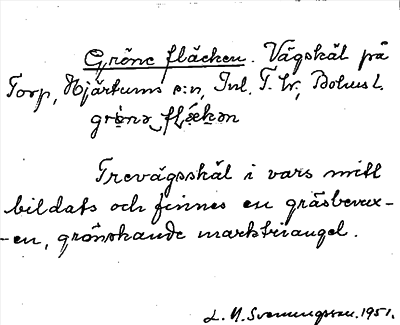 Gröne fläcken. Vägskäl på
Torp, Hjärtums s:n, Inl. T. hr, Bohusl.
grö̀nə flǽkən
Trevägsskäl i vars mitt
bildats och finnes en gräsbevux-
-en, grönskande marktriangel.
L. N. Svenungsson. 1951.